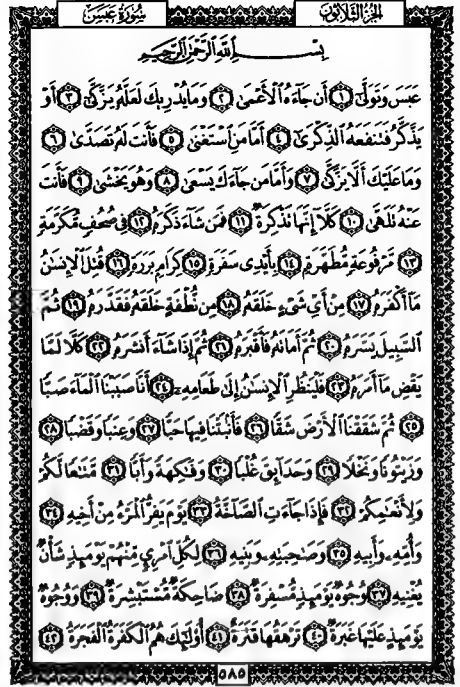 سُورَةُ عَبَسَ
الجزء الثلاثون
بِسْمِ اللَّهِ الرَّحْمَٰنِ الرَّحِيمِ
عَبَسَ وَتَوَلَّىٰ ١ أَن جَاءَهُ الْأَعْمَىٰ ٢ وَمَا يُدْرِيكَ لَعَلَّهُ يَزَّكَّىٰ ٣ أَوْ
يَذَّكَّرُ فَتَنفَعَهُ الذِّكْرَىٰ ٤ أَمَّا مَنِ اسْتَغْنَىٰ ٥ فَأَنتَ لَهُ تَصَدَّىٰ ٦
وَمَا عَلَيْكَ أَلَّا يَزَّكَّىٰ ٧ وَأَمَّا مَن جَاءَكَ يَسْعَىٰ ٨ وَهُوَ يَخْشَىٰ ٩ فَأَنتَ
عَنْهُ تَلَهَّىٰ ١٠ كَلَّا إِنَّهَا تَذْكِرَةٌ ١١ فَمَن شَاءَ ذَكَرَهُ ١٢ فِي صُحُفٍ مُّكَرَّمَةٍ
١٣ مَّرْفُوعَةٍ مُّطَهَّرَةٍ ١٤ بِأَيْدِي سَفَرَةٍ ١٥ كِرَامٍ بَرَرَةٍ ١٦ قُتِلَ الْإِنسَانُ
مَا أَكْفَرَهُ ١٧ مِنْ أَيِّ شَيْءٍ خَلَقَهُ ١٨ مِن نُّطْفَةٍ خَلَقَهُ فَقَدَّرَهُ ١٩ ثُمَّ
السَّبِيلَ يَسَّرَهُ ٢٠ ثُمَّ أَمَاتَهُ فَأَقْبَرَهُ ٢١ ثُمَّ إِذَا شَاءَ أَنشَرَهُ ٢٢ كَلَّا لَمَّا
يَقْضِ مَا أَمَرَهُ ٢٣ فَلْيَنظُرِ الْإِنسَانُ إِلَىٰ طَعَامِهِ ٢٤ أَنَّا صَبَبْنَا الْمَاءَ صَبًّا
٢٥ ثُمَّ شَقَقْنَا الْأَرْضَ شَقًّا ٢٦ فَأَنبَتْنَا فِيهَا حَبًّا ٢٧ وَعِنَبًا وَقَضْبًا ٢٨
وَزَيْتُونًا وَنَخْلًا ٢٩ وَحَدَائِقَ غُلْبًا ٣٠ وَفَاكِهَةً وَأَبًّا ٣١ مَّتَاعًا لَّكُمْ
وَلِأَنْعَامِكُمْ ٣٢ فَإِذَا جَاءَتِ الصَّاخَّةُ ٣٣ يَوْمَ يَفِرُّ الْمَرْءُ مِنْ أَخِيهِ ٣٤
وَأُمِّهِ وَأَبِيهِ ٣٥ وَصَاحِبَتِهِ وَبَنِيهِ ٣٦ لِكُلِّ امْرِئٍ مِّنْهُمْ يَوْمَئِذٍ شَأْنٌ
يُغْنِيهِ ٣٧ وُجُوهٌ يَوْمَئِذٍ مُّسْفِرَةٌ ٣٨ ضَاحِكَةٌ مُّسْتَبْشِرَةٌ ٣٩ وَوُجُوهٌ
يَوْمَئِذٍ عَلَيْهَا غَبَرَةٌ ٤٠ تَرْهَقُهَا قَتَرَةٌ ٤١ أُولَٰئِكَ هُمُ الْكَفَرَةُ الْفَجَرَةُ ٤٢
٥٨٥